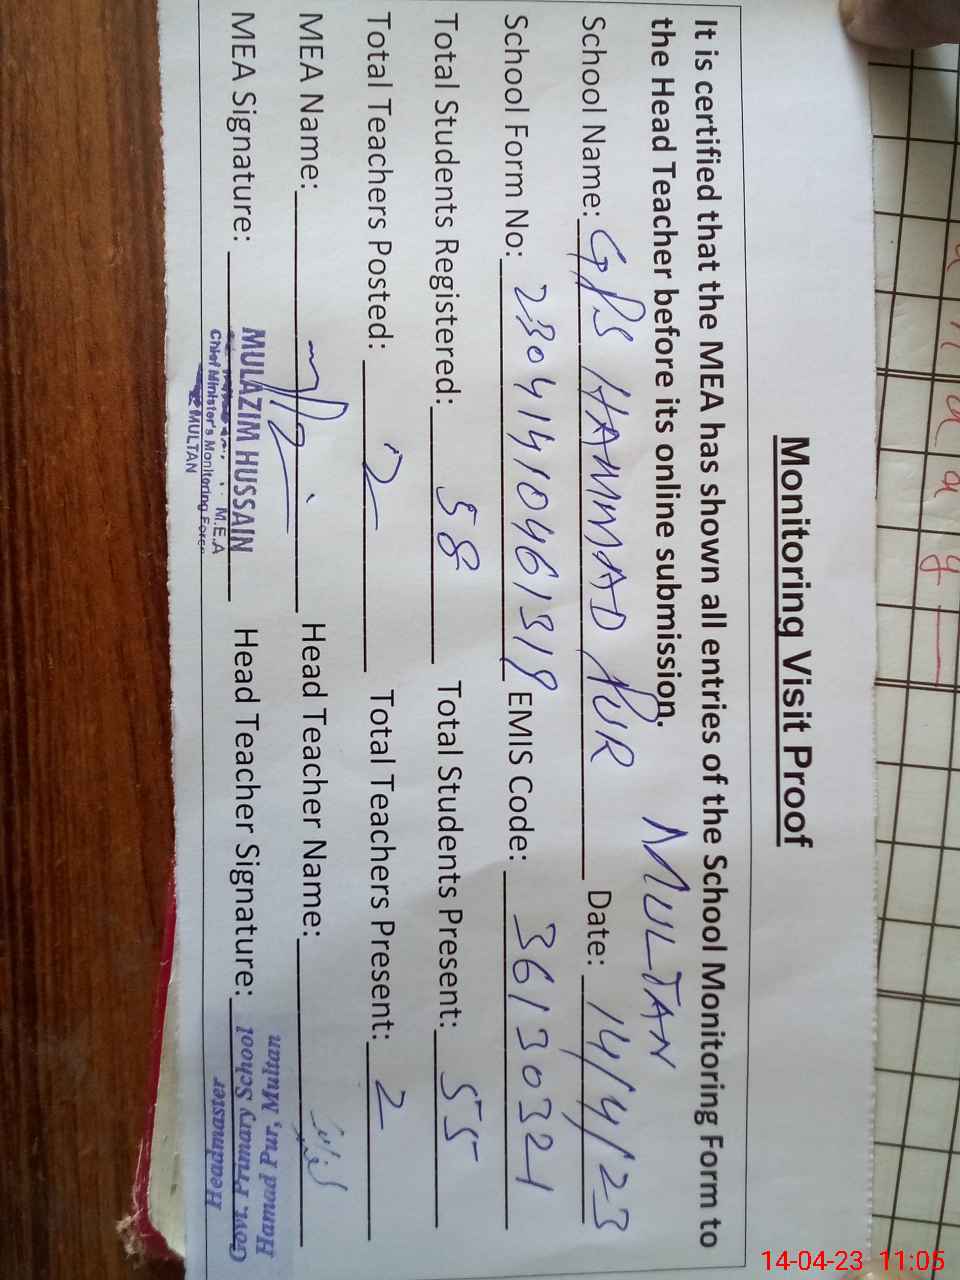 Monitoring Visit Proof
It is certified that the MEA has shown all entries of the School Monitoring Form to
the Head Teacher before its online submission.
MULTAN
School Name: GPS HAMMAD PUR Date: 14/4/23
School Form No: 23041410461319 EMIS Code: 36130321
Total Students Registered: 58 Total Students Present: 55
Total Teachers Posted: 2 Total Teachers Present: 2
MEA Name: Head Teacher Name:
MEA Signature: MULAZIM HUSSAIN Head Teacher Signature:
M.E.A
Chief Minister's Monitoring Force
MULTAN
Headmaster
Govt. Primary School
Hamad Pur, Multan
14-04-23 11:05